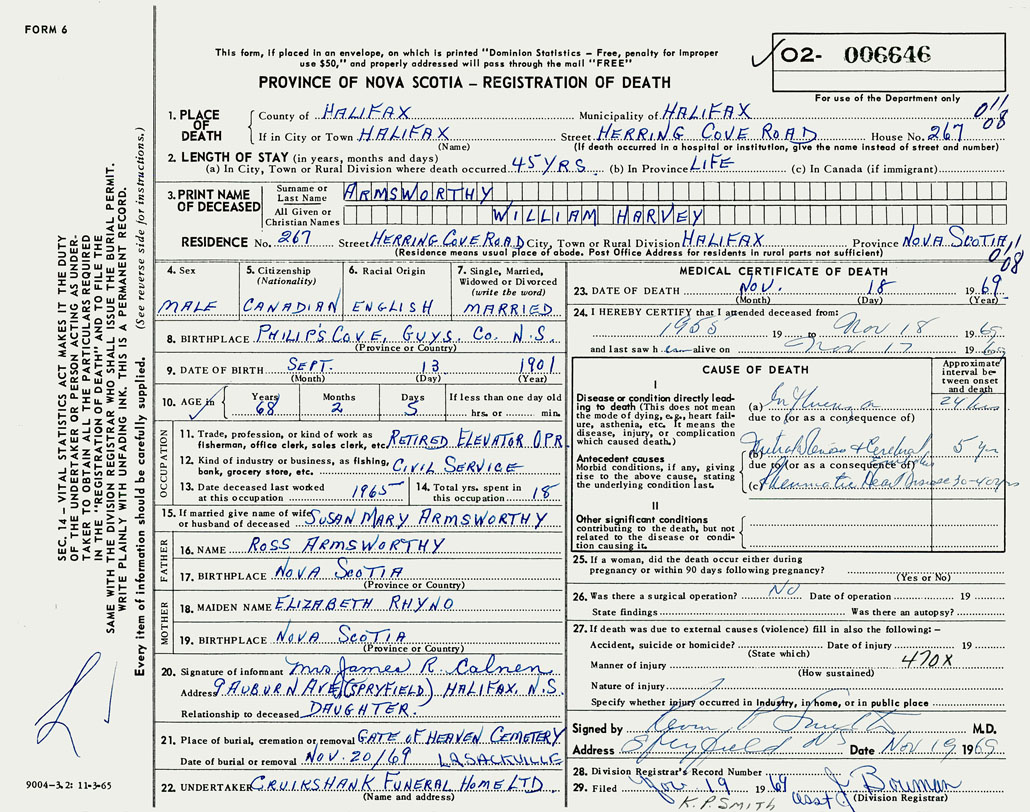 FORM 6
This form, if placed in an envelope, on which is printed "Dominion Statistics – Free, penalty for improper
use $50," and properly addressed will pass through the mail "FREE"
PROVINCE OF NOVA SCOTIA – REGISTRATION OF DEATH
02- 006646
For use of the Department only
011
08
1. PLACE OF DEATH County of HALIFAX Municipality of HALIFAX
If in City or Town HALIFAX Street HERRING COVE ROAD House No. 267
(Name) (If death occurred in a hospital or institution, give the name instead of street and number)
2. LENGTH OF STAY (in years, months and days)
(a) In City, Town or Rural Division where death occurred 45 YRS. (b) In Province LIFE (c) In Canada (if immigrant)
3. PRINT NAME OF DECEASED Surname or Last Name ARMSWORTHY
All Given or Christian Names WILLIAM HARVEY
RESIDENCE No. 267 Street HERRING COVE ROAD City, Town or Rural Division HALIFAX Province NOVA SCOTIA
(Residence means usual place of abode. Post Office Address for residents in rural parts not sufficient)
011
08
4. Sex MALE
5. Citizenship (Nationality) CANADIAN
6. Racial Origin ENGLISH
7. Single, Married, Widowed or Divorced (write the word) MARRIED
8. BIRTHPLACE PHILIP'S COVE, GUYS. CO. N.S.
(Province or Country)
9. DATE OF BIRTH SEPT. 13 1901
(Month) (Day) (Year)
10. AGE in Years 68 Months 2 Days 5 If less than one day old hrs. or min.
OCCUPATION
11. Trade, profession, or kind of work as fisherman, office clerk, sales clerk, etc. RETIRED ELEVATOR OPR.
12. Kind of industry or business, as fishing, bank, grocery store, etc. CIVIL SERVICE
13. Date deceased last worked at this occupation 1965
14. Total yrs. spent in this occupation 18
15. If married give name of wife or husband of deceased SUSAN MARY ARMSWORTHY
FATHER
16. NAME ROSS ARMSWORTHY
17. BIRTHPLACE NOVA SCOTIA
(Province or Country)
MOTHER
18. MAIDEN NAME ELIZABETH RHYNO
19. BIRTHPLACE NOVA SCOTIA
(Province or Country)
20. Signature of informant Mrs. James R. Colnen
Address 9 AUBURN AVE, (SPRYFIELD) HALIFAX, N.S.
Relationship to deceased DAUGHTER.
21. Place of burial, cremation or removal GATE OF HEAVEN CEMETERY
Date of burial or removal NOV. 20/69 LR. SACKVILLE
22. UNDERTAKER CRUIKSHANK FUNERAL HOME LTD.
(Name and address)
MEDICAL CERTIFICATE OF DEATH
23. DATE OF DEATH NOV. 18 1969
(Month) (Day) (Year)
24. I HEREBY CERTIFY that I attended deceased from:
1955 19 to Nov 18 1969
and last saw him alive on Nov 17 1969
CAUSE OF DEATH
Approximate interval between onset and death
I
Disease or condition directly leading to death (This does not mean the mode of dying, e.g., heart failure, asthenia, etc. It means the disease, injury, or complication which caused death.)
(a) Influenza 24 hrs
due to (or as a consequence of)
Antecedent causes
Morbid conditions, if any, giving rise to the above cause, stating the underlying condition last.
(b) Mitral Stenosis & Cerebral 5 yr
due to (or as a consequence of)
(c) Rheumatic Heart Disease 30-40 yrs
II
Other significant conditions contributing to the death, but not related to the disease or condition causing it.
25. If a woman, did the death occur either during pregnancy or within 90 days following pregnancy?
(Yes or No)
26. Was there a surgical operation? NO Date of operation 19
State findings Was there an autopsy?
27. If death was due to external causes (violence) fill in also the following: –
Accident, suicide or homicide? Date of injury 19
(State which)
470X
Manner of injury
(How sustained)
Nature of injury
Specify whether injury occurred in industry, in home, or in public place
Signed by M.D.
Address Spryfield NS Date Nov 19 1969
28. Division Registrar's Record Number
29. Filed Nov. 19 1969 asst J. Bowman
(Division Registrar)
K.P. SMITH
SEC. 14 – VITAL STATISTICS ACT MAKES IT THE DUTY
OF THE UNDERTAKER OR PERSON ACTING AS UNDER-
TAKER TO OBTAIN ALL THE PARTICULARS REQUIRED
IN THE "REGISTRATION OF DEATH" AND TO FILE THE
SAME WITH THE DIVISION REGISTRAR WHO SHALL ISSUE THE BURIAL PERMIT.
WRITE PLAINLY WITH UNFADING INK. THIS IS A PERMANENT RECORD.
Every item of information should be carefully supplied. (See reverse side for instructions.)
9004-3.2: 11-3-65